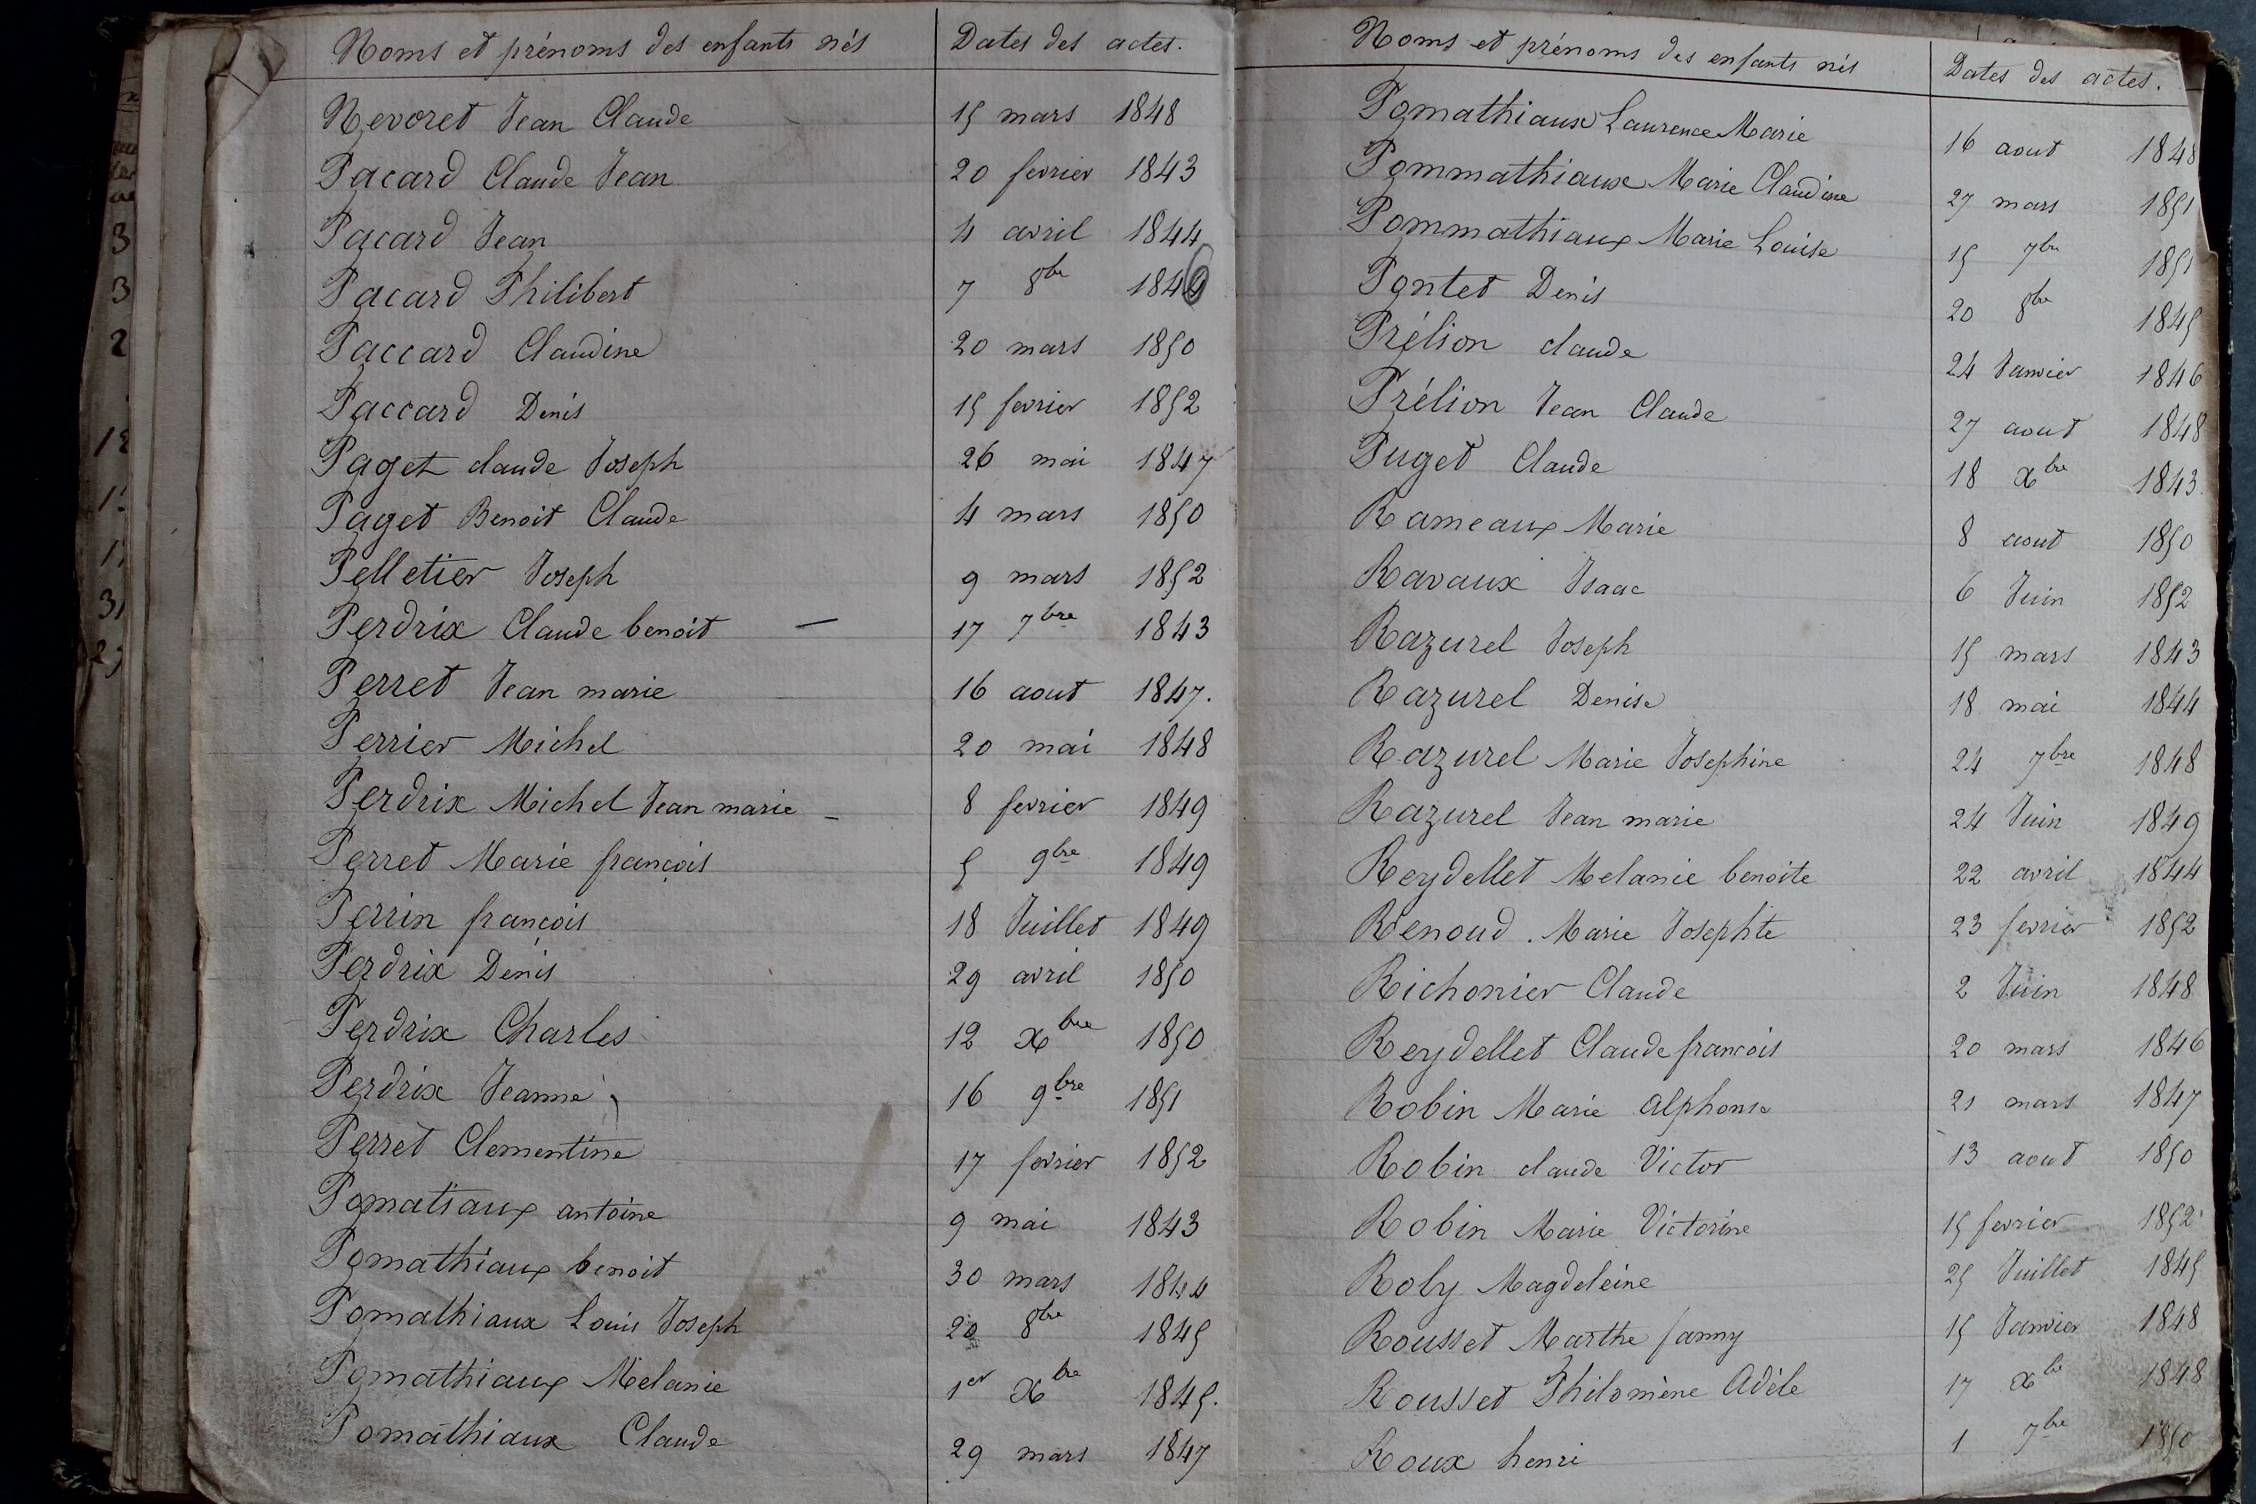 Noms et prénoms des enfants nés Dates des actes.
Nevoret Jean Claude 15 mars 1848
Pacard Claude Jean 20 fevrier 1843
Pacard Jean 4 avril 1844
Pacard Philibert 7 8bre 1846
Paccard Claudine 20 mars 1850
Paccard Denis 15 fevrier 1852
Paget claude Joseph 26 mai 1847
Paget Benoit Claude 4 mars 1850
Pelletier Joseph 9 mars 1852
Perdrix Claude benoit — 17 7bre 1843
Perret Jean marie 16 aout 1847.
Perrier Michel 20 mai 1848
Perdrix Michel Jean marie - 8 fevrier 1849
Perret Marie françois 5 9bre 1849
Perrin francois 18 Juillet 1849
Perdrix Denis 29 avril 1850
Perdrix Charles 12 xbre 1850
Perdrix Jeanne 16 9bre 1851
Perret Clementine 17 fevrier 1852
Pomatiaux antoine 9 mai 1843
Pomathiaux benoit 30 mars 1844
Pomathiaux Louis Joseph 20 8bre 1845
Pomathiaux Melanie 1er xbre 1845.
Pomathiaux Claude 29 mars 1847
Noms et prénoms des enfants nés Dates des actes.
Pomathiaux Laurence Marie 16 aout 1848
Pommathiaux Marie Claudine 27 mars 1851
Pommathiaux Marie Louise 15 7bre 1851
Pontet Denis 20 8bre 1845
Prélion claude 24 Janvier 1846
Prélion Jean Claude 27 aout 1848
Puget Claude 18 xbre 1843
Rameaux Marie 8 aout 1850
Ravaux Isaac 6 Juin 1852
Razurel Joseph 15 mars 1843
Razurel Denise 18 mai 1844
Razurel Marie Josephine 24 7bre 1848
Razurel Jean marie 24 Juin 1849
Reydellet Melanie benoite 22 avril 1844
Renoud. Marie Josephte 23 fevrier 1852
Richonier Claude 2 Juin 1848
Reydellet Claude francois 20 mars 1846
Robin Marie alphonse 21 mars 1847
Robin claude Victor 13 aout 1850
Robin Marie Victorine 15 fevrier 1852
Roby Magdeleine 25 Juillet 1845
Rousset Marthe fanny 15 Janvier 1848
Rousset Philomène Adèle 17 xbre 1848
Roux henri 1 7bre 1850